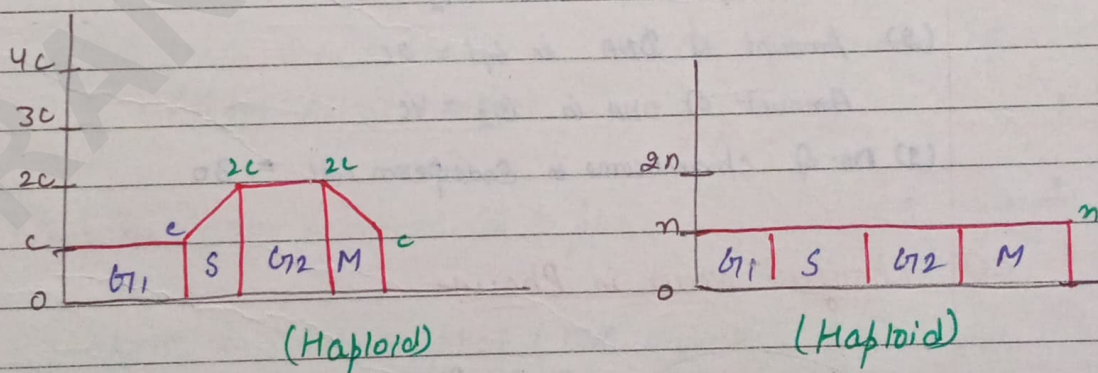 4c
3c
2c
c
0
2c 2c
c c
G1 S G2 M
(Haploid)
2n
n
0
n
G1 S G2 M
(Haploid)